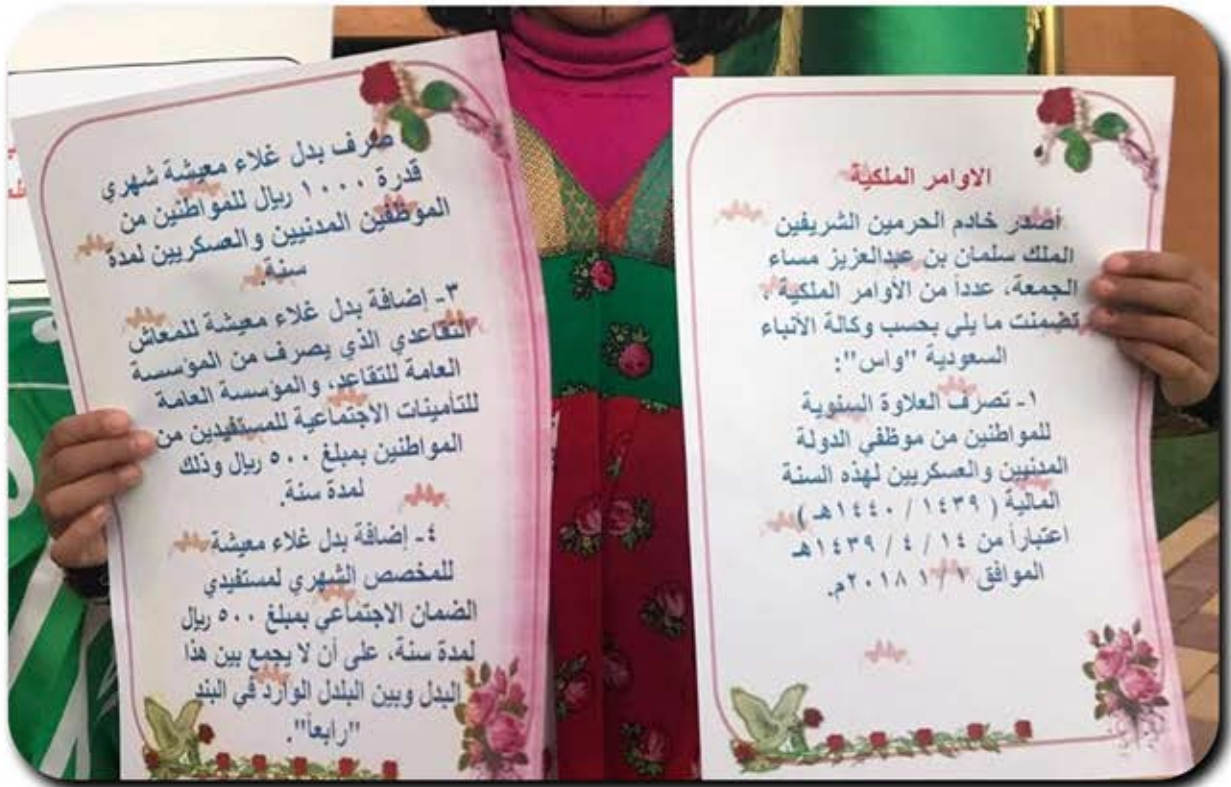 الاوامر الملكية
أصدر خادم الحرمين الشريفين
الملك سلمان بن عبدالعزيز مساء
الجمعة، عدداً من الأوامر الملكية ،
تضمنت ما يلي بحسب وكالة الأنباء
السعودية "واس":
١- تصرف العلاوة السنوية
للمواطنين من موظفي الدولة
المدنيين والعسكريين لهذه السنة
المالية ( ١٤٣٩ / ١٤٤٠هـ )
اعتباراً من ١٤ / ٤ / ١٤٣٩هـ
الموافق ١ / ١ ٢٠١٨م.
صرف بدل غلاء معيشة شهري
قدرة ١٠٠٠ ريال للمواطنين من
الموظفين المدنيين والعسكريين لمدة
سنة.
٣- إضافة بدل غلاء معيشة للمعاش
التقاعدي الذي يصرف من المؤسسة
العامة للتقاعد، والمؤسسة العامة
للتأمينات الاجتماعية للمستفيدين من
المواطنين بمبلغ ٥٠٠ ريال وذلك
لمدة سنة.
٤- إضافة بدل غلاء معيشة
للمخصص الشهري لمستفيدي
الضمان الاجتماعي بمبلغ ٥٠٠ ريال
لمدة سنة، على أن لا يجمع بين هذا
البدل وبين البلدل الوارد في البند
"رابعاً".